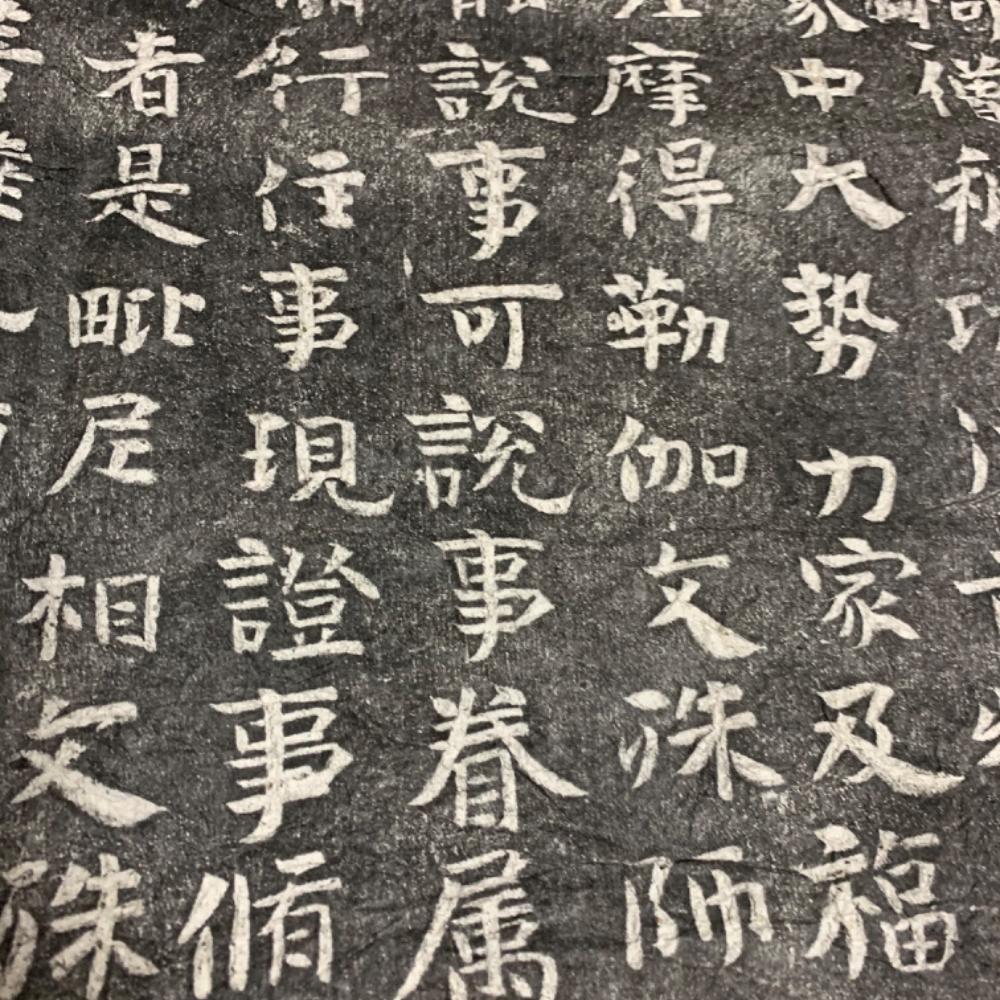 僧
家中大勢力家及福
摩得勒伽文殊師
說事可說事眷属
行住事現證事脩
者是毗尼相文殊